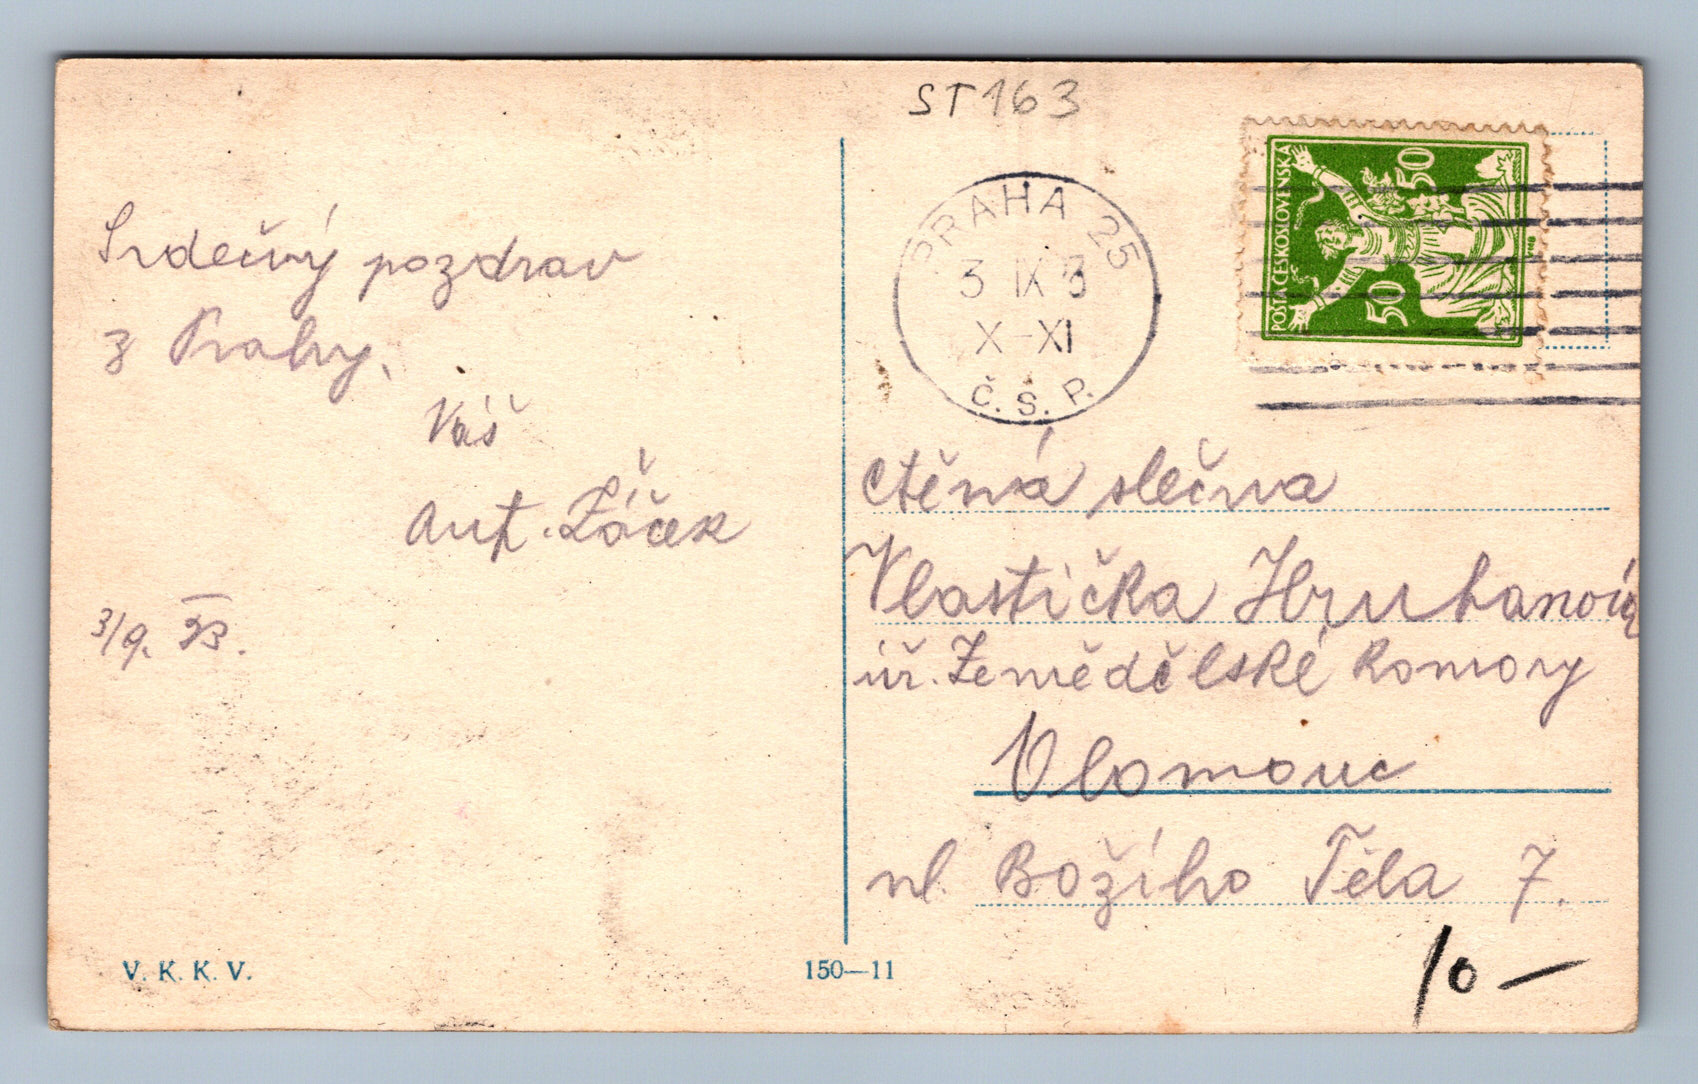 ST163
Srdečný pozdrav
z Prahy.
Váš
Ant. Žáček
3/9. 23.
V. K. K. V.
150—11
PRAHA 25
3 IX 3
X-XI
Č. S. P.
POŠTA ČESKOSLOVENSKÁ
50
50
Ctěná slečna
Vlastička Hrubanová
úř. Zemědělské komory
Olomouc
ul. Božího Těla 7.
10 —